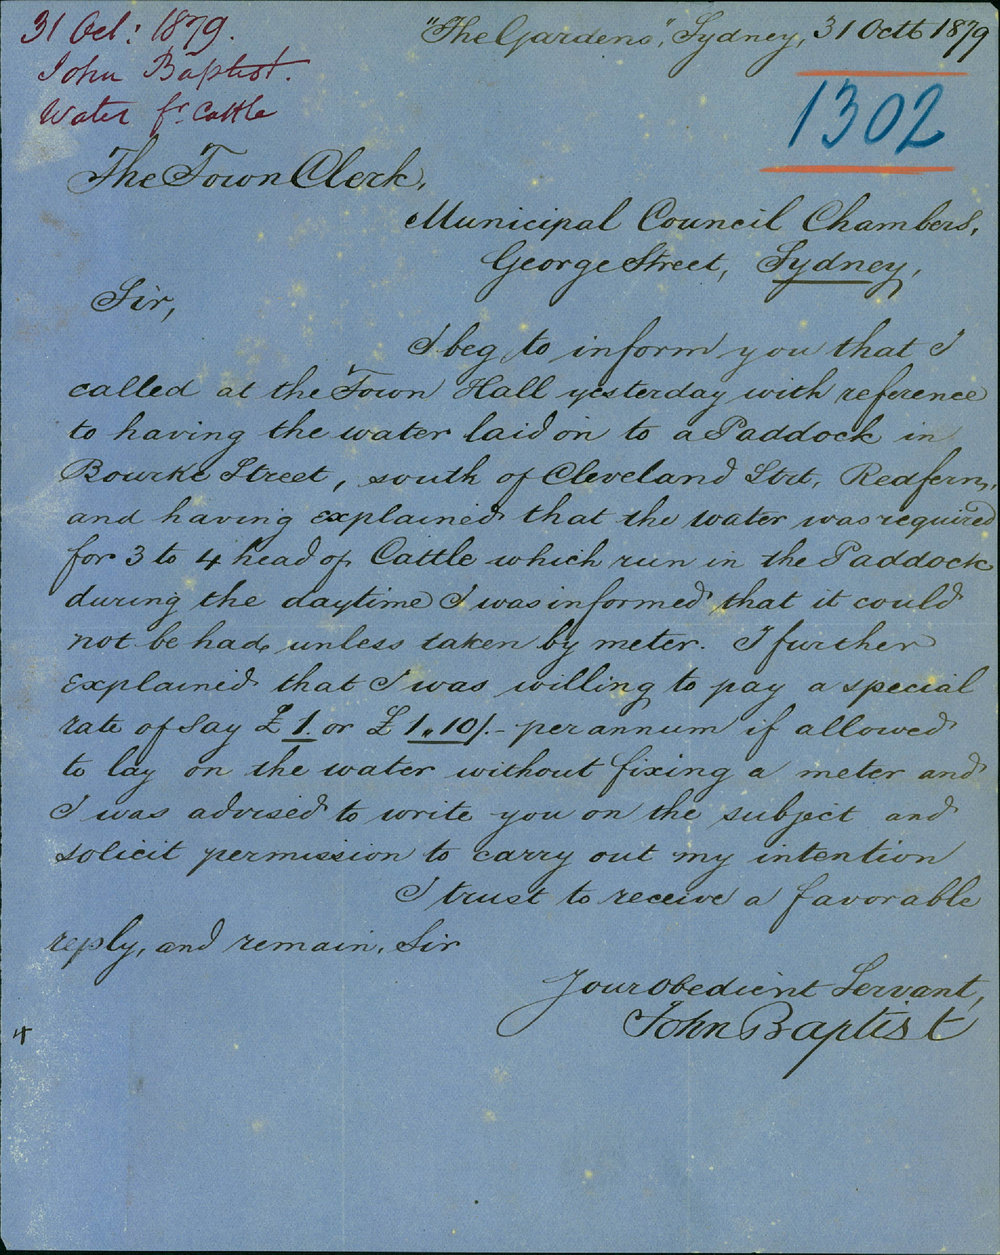 31 Oct: 1879.
John Baptist.
Water fr. Cattle
"The Gardens", Sydney, 31 Octb 1879
1302
The Town Clerk,
Municipal Council Chambers,
George Street, Sydney,
Sir,
I beg to inform you that I
called at the Town Hall yesterday with reference
to having the water laid on to a Paddock in
Bourke Street, south of Cleveland Strt, Redfern,
and having explained that the water was required
for 3 to 4 head of Cattle which run in the Paddock
during the daytime I was informed that it could
not be had, unless taken by meter. I further
explained that I was willing to pay a special
rate of say £1. or £1.,10/.- per annum if allowed
to lay on the water without fixing a meter and
I was advised to write you on the subject and
solicit permission to carry out my intention
I trust to receive a favorable
reply, and remain, Sir
Your obedient Servant,
John Baptist